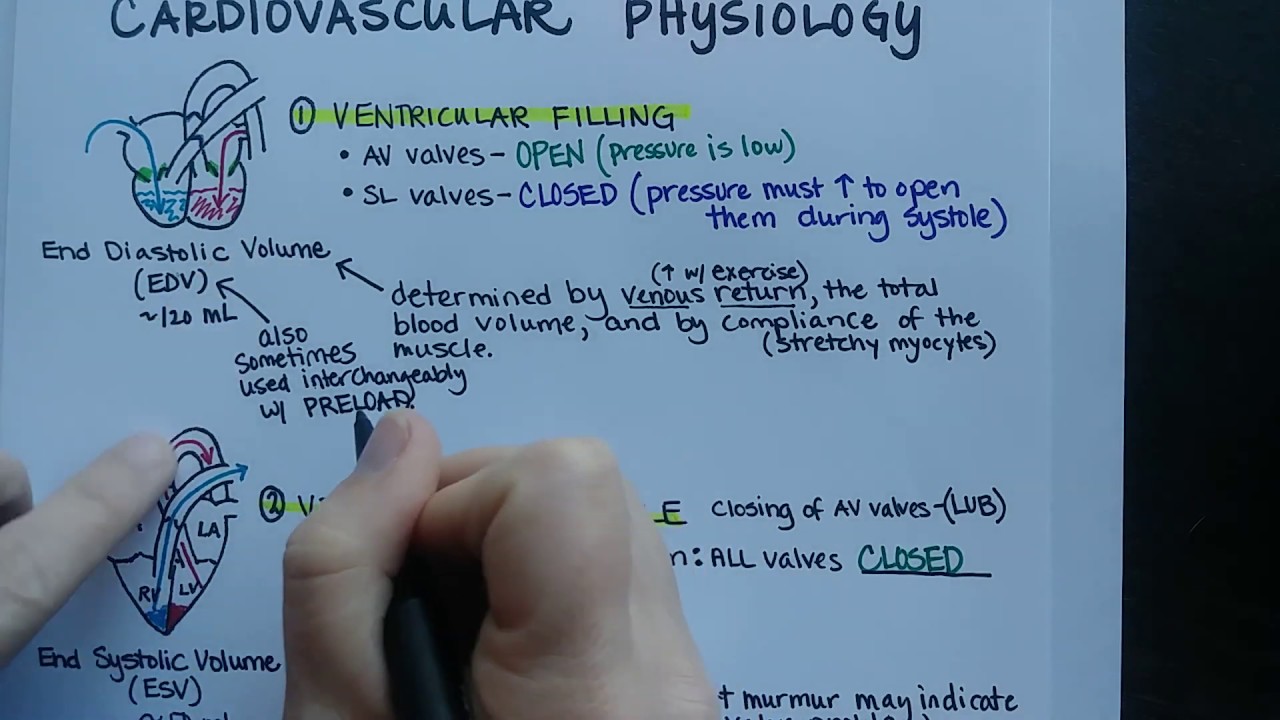 CARDIOVASCULAR PHYSIOLOGY
① VENTRICULAR FILLING
• AV valves - OPEN (pressure is low)
• SL valves - CLOSED (pressure must ↑ to open
them during systole)
End Diastolic Volume
(EDV)
~120 mL
also
sometimes
used interchangeably
w/ PRELOAD.
(↑ w/ exercise)
determined by venous return, the total
blood volume, and by compliance of the
muscle.
(stretchy myocytes)
② V
E closing of AV valves-(LUB)
n: ALL valves CLOSED
LA
RV
LV
End Systolic Volume
(ESV)
murmur may indicate